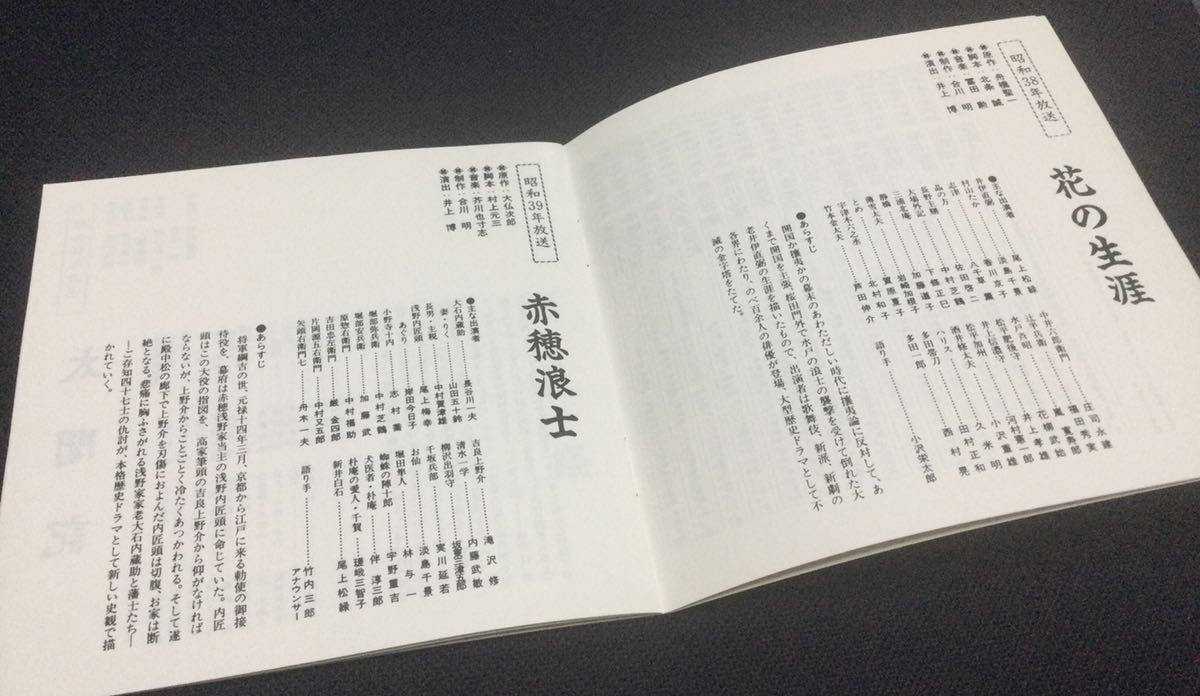 昭和38年放送
花の生涯
●原作：舟橋聖一
●脚本：北条 誠
●音楽：冨田 勲
●制作：合川 明
●演出：井上 博
●主な出演者
井伊直弼……尾上松緑
村山たか……淡島千景
志津……香川京子
……八千草 薫
長野主膳……佐田啓二
……中村芝鶴
……下條正巳
……加藤道子
三浦北庵……岩崎加根子
……賀原夏子
薄雪太夫……北村和子
とめ
宇津木六之丞……芦田伸介
竹本金太夫
中井六郎衛門……庄司永建
……福田秀実
辻平兵衛……嵐 寛寿郎
水戸斉昭……花柳武始
松平肥後守……井上孝雄
……河村憲一郎
井伊信濃守……小沢重雄
松平加州……久米 明
酒井修理大夫……田村正和
ハリス
多田帯刀……西村 晃
多田一郎
語り手……小沢栄太郎
●あらすじ
開国か攘夷かの幕末のあわただしい時代に攘夷論に反対して、あ
くまで開国を主張、桜田門外で水戸の浪士の襲撃を受けて倒れた大
老井伊直弼の生涯を描いたもので、出演者は歌舞伎、新派、新劇の
各界にわたり、のべ百余人の俳優が登場、大型歴史ドラマとして不
滅の金字塔をたてた。
昭和39年放送
赤穂浪士
●原作：大仏次郎
●脚本：村上元三
●音楽：芥川也寸志
●制作：合川 明
●演出：井上 博
●主な出演者
大石内蔵助……長谷川一夫
妻・りく……山田五十鈴
長男・主税……中村賀津雄
浅野内匠頭……尾上梅幸
あぐり……岸田今日子
小野寺十内……志村 喬
堀部弥兵衛……中村芝鶴
堀部安兵衛……加藤 武
原惣右衛門……中村福助
吉田忠左衛門……嚴 金四郎
片岡源五右衛門……中村又五郎
矢頭右衛門七……舟木一夫
吉良上野介……滝沢 修
清水一学……内藤武敏
柳沢出羽守……坂東三津五郎
千坂兵部……実川延若
お仙……淡島千景
堀田隼人……林 与一
蜘蛛の陣十郎……宇野重吉
犬医者・朴庵……伴 淳三郎
朴庵の愛人・千賀……瑳峨三智子
新井白石……尾上松緑
語り手……竹内三郎
アナウンサー
●あらすじ
将軍綱吉の世、元禄十四年三月、京都から江戸に来る勅使の御接
待役を、幕府は赤穂浅野家当主の浅野内匠頭に命じていた。内匠
頭はこの大役の指図を、高家筆頭の吉良上野介から仰がなければ
ならないが、上野介からことごとく冷たくあつかわれる。そして遂
に殿中松の廊下で上野介を刃傷におよんだ内匠頭は切腹、お家は断
絶となる。悲痛に胸ふさがれる浅野家家老大石内蔵助と藩士たち―
―ご存知四十七士の仇討が、本格歴史ドラマとして新しい史観で描
かれていく。
太閤記